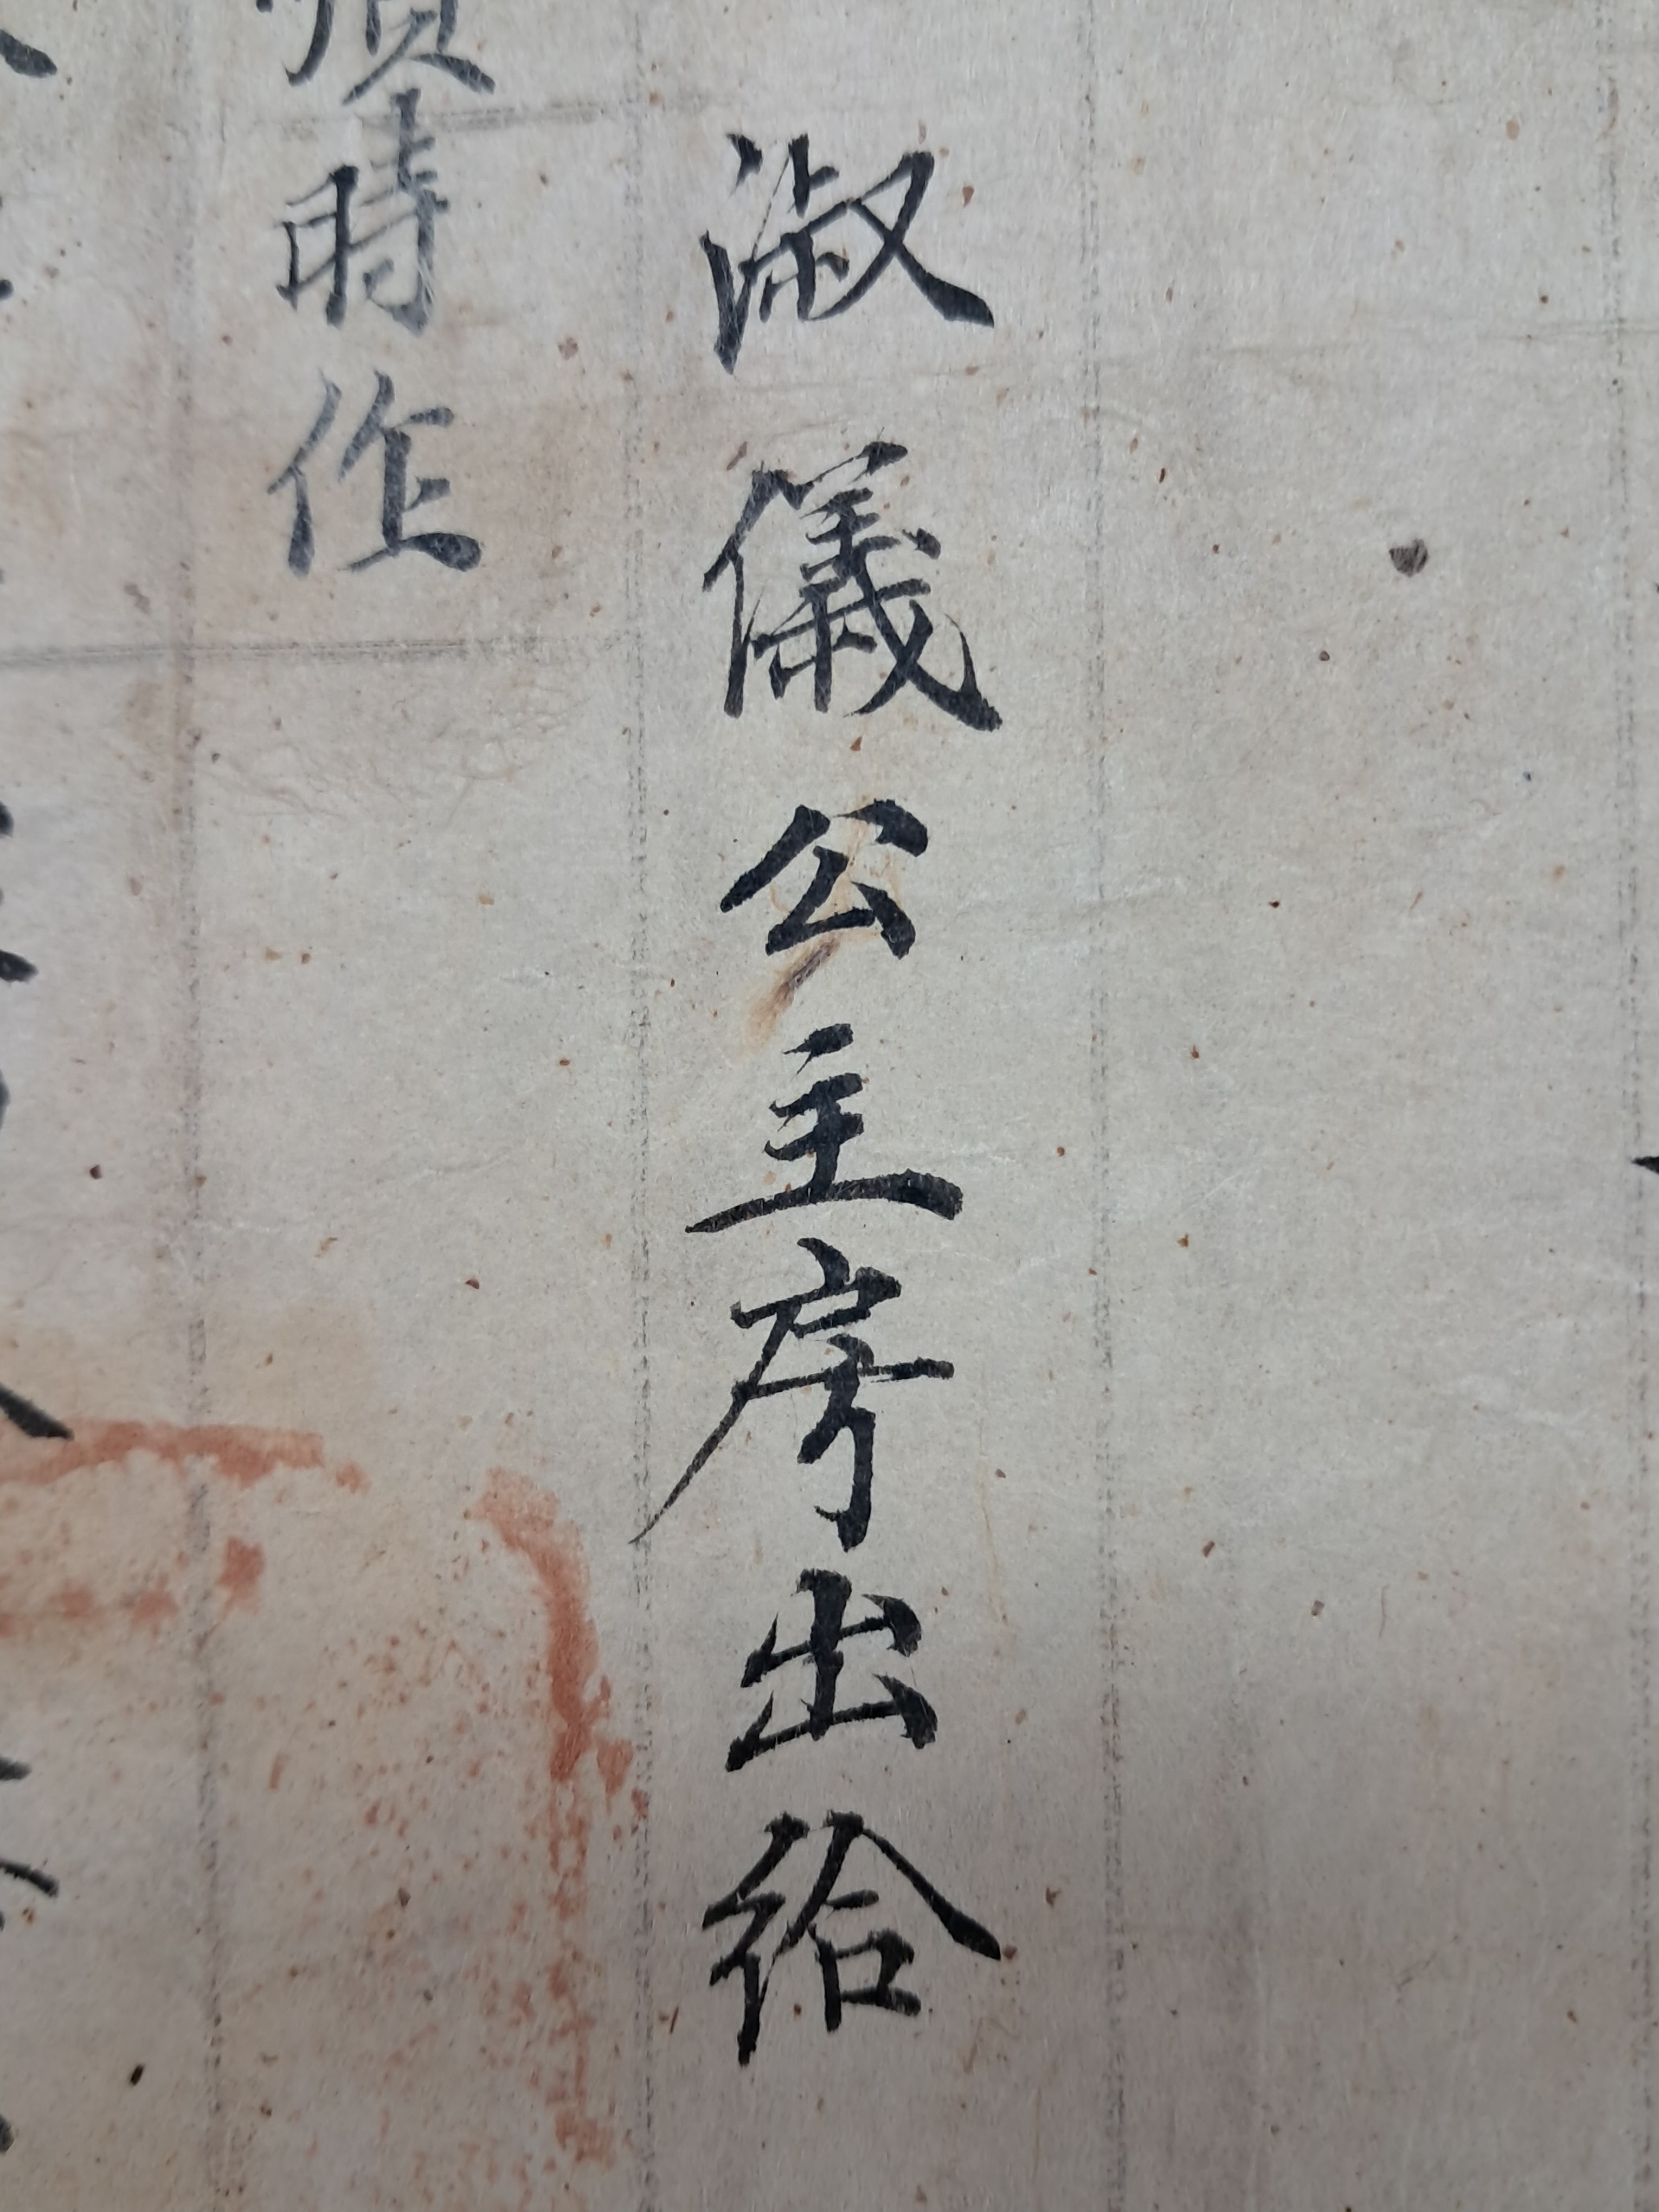 淑儀公主房出給
時作